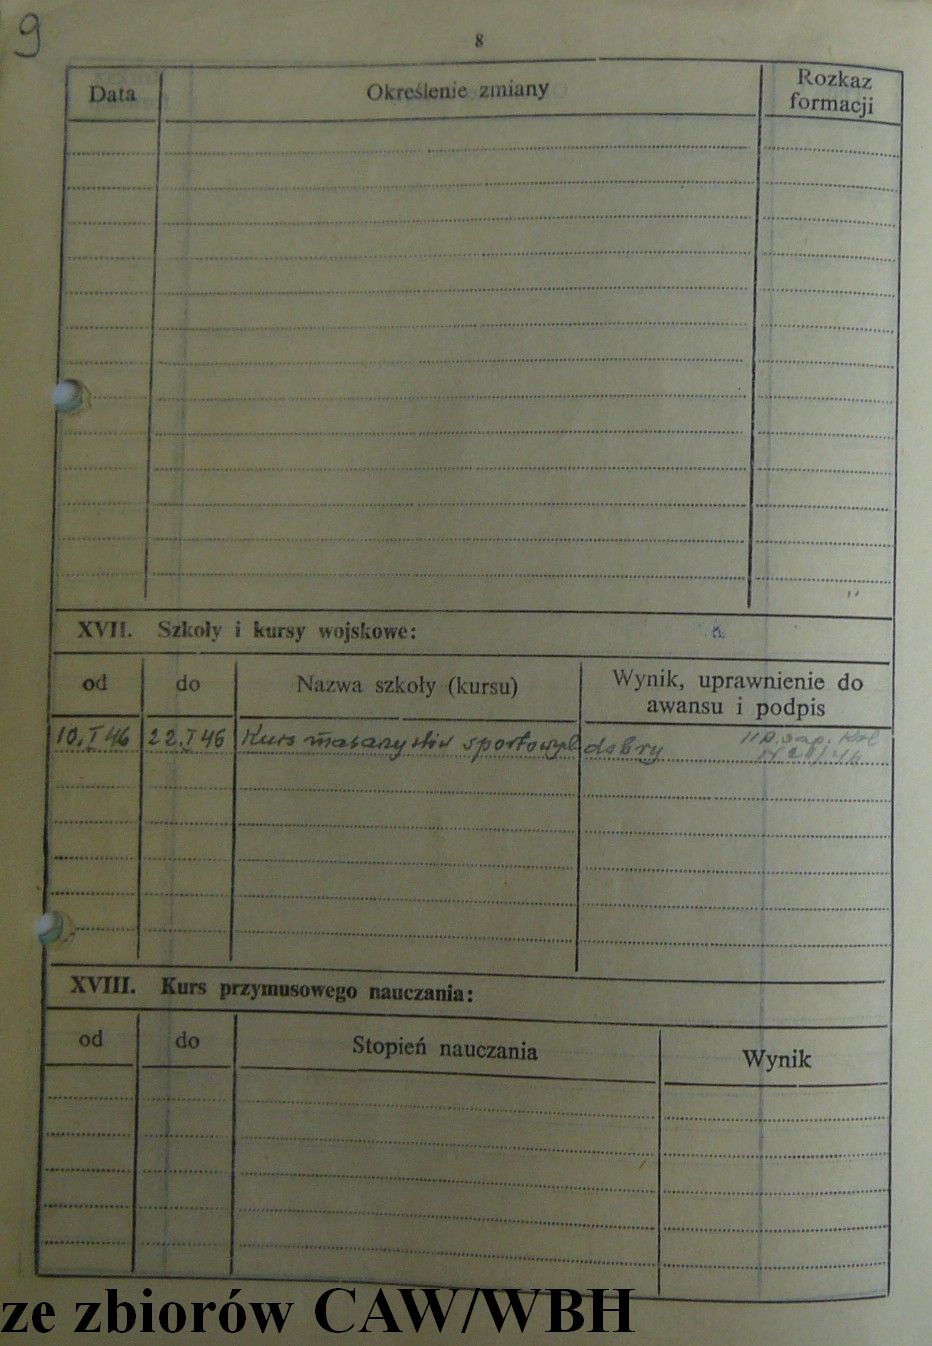 9
8
Data Określenie zmiany Rozkaz formacji
XVII. Szkoły i kursy wojskowe:
od do Nazwa szkoły (kursu) Wynik, uprawnienie do awansu i podpis
10.I 46 22.I 46 Kurs masarzystów sportowych dobry
XVIII. Kurs przymusowego nauczania:
od do Stopień nauczania Wynik
ze zbiorów CAW/WBH